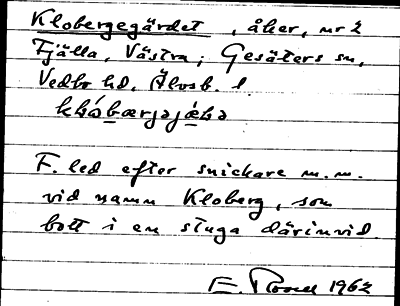 Klobergegärdet, åker, nr 2
Fjälla, Västra; Gesäters sn,
Vedbo hd, Älvsb. l.
F. led efter snickare m.m.
vid namn Kloberg, som
bott i en stuga därinvid.
1962